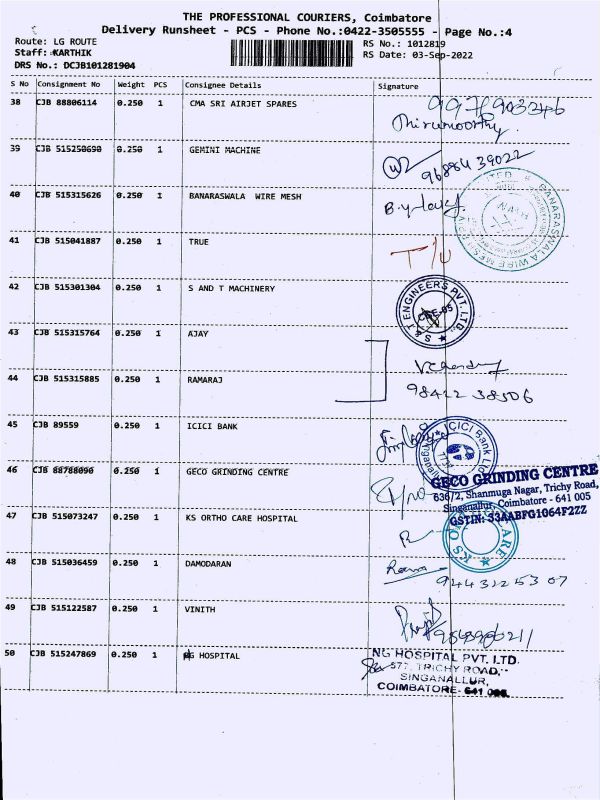 THE PROFESSIONAL COURIERS, Coimbatore
Delivery Runsheet - PCS - Phone No.:0422-3505555 - Page No.:4
Route: LG ROUTE
RS No.: 1012819
Staff: KARTHIK
RS Date: 03-Sep-2022
DRS No.: DCJB101281904
S No Consignment No Weight PCS Consignee Details Signature
38 CJB 88806114 0.250 1 CMA SRI AIRJET SPARES
Thirumoorthy
39 CJB 515250690 0.250 1 GEMINI MACHINE
96884 39022
40 CJB 515315626 0.250 1 BANARASWALA WIRE MESH
BANARASWALA WIRE MESH
41 CJB 515041887 0.250 1 TRUE
42 CJB 515301304 0.250 1 S AND T MACHINERY
S & T ENGINEERS PVT. LTD.
CBE-05
43 CJB 515315764 0.250 1 AJAY
44 CJB 515315885 0.250 1 RAMARAJ
98422 38506
45 CJB 89559 0.250 1 ICICI BANK
ICICI Bank Ltd
46 CJB 88788090 0.250 1 GECO GRINDING CENTRE
GECO GRINDING CENTRE
636/2, Shanmuga Nagar, Trichy Road,
Singanallur, Coimbatore - 641 005
GSTIN: 33AABFG1064F2ZZ
47 CJB 515073247 0.250 1 KS ORTHO CARE HOSPITAL
KS ORTHO CARE
48 CJB 515036459 0.250 1 DAMODARAN
94431 25307
49 CJB 515122587 0.250 1 VINITH
50 CJB 515247869 0.250 1 NG HOSPITAL
NG HOSPITAL PVT. LTD.
577, TRICHY ROAD,
SINGANALLUR,
COIMBATORE- 641 005.